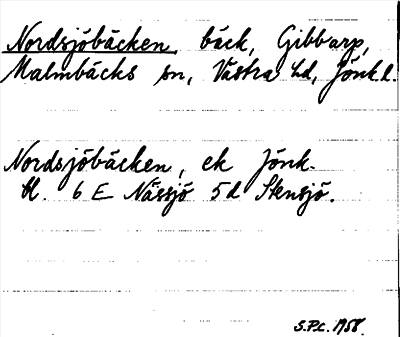 Nordsjöbäcken, bäck, Gibbarp,
Malmbäcks sn, Västra hd, Jönk.l.
Nordsjöbäcken, ek Jönk.
bl. 6 E Nässjö 5d Stensjö.
S.P.L. 1958.